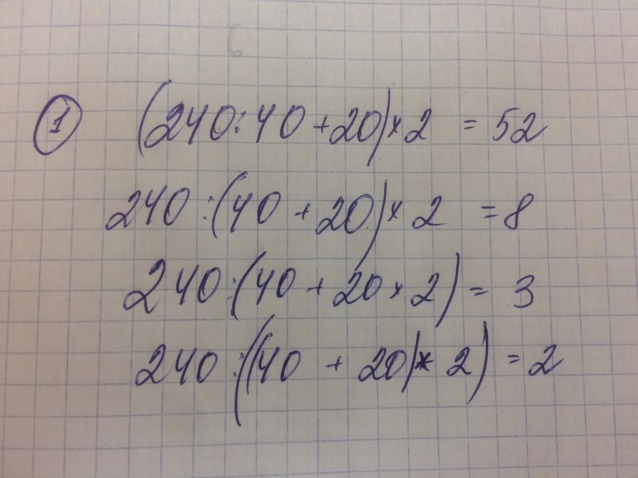 1 (240:40+20)×2 = 52
240:(40+20)×2 = 8
240:(40+20×2) = 3
240:((40+20)×2) = 2